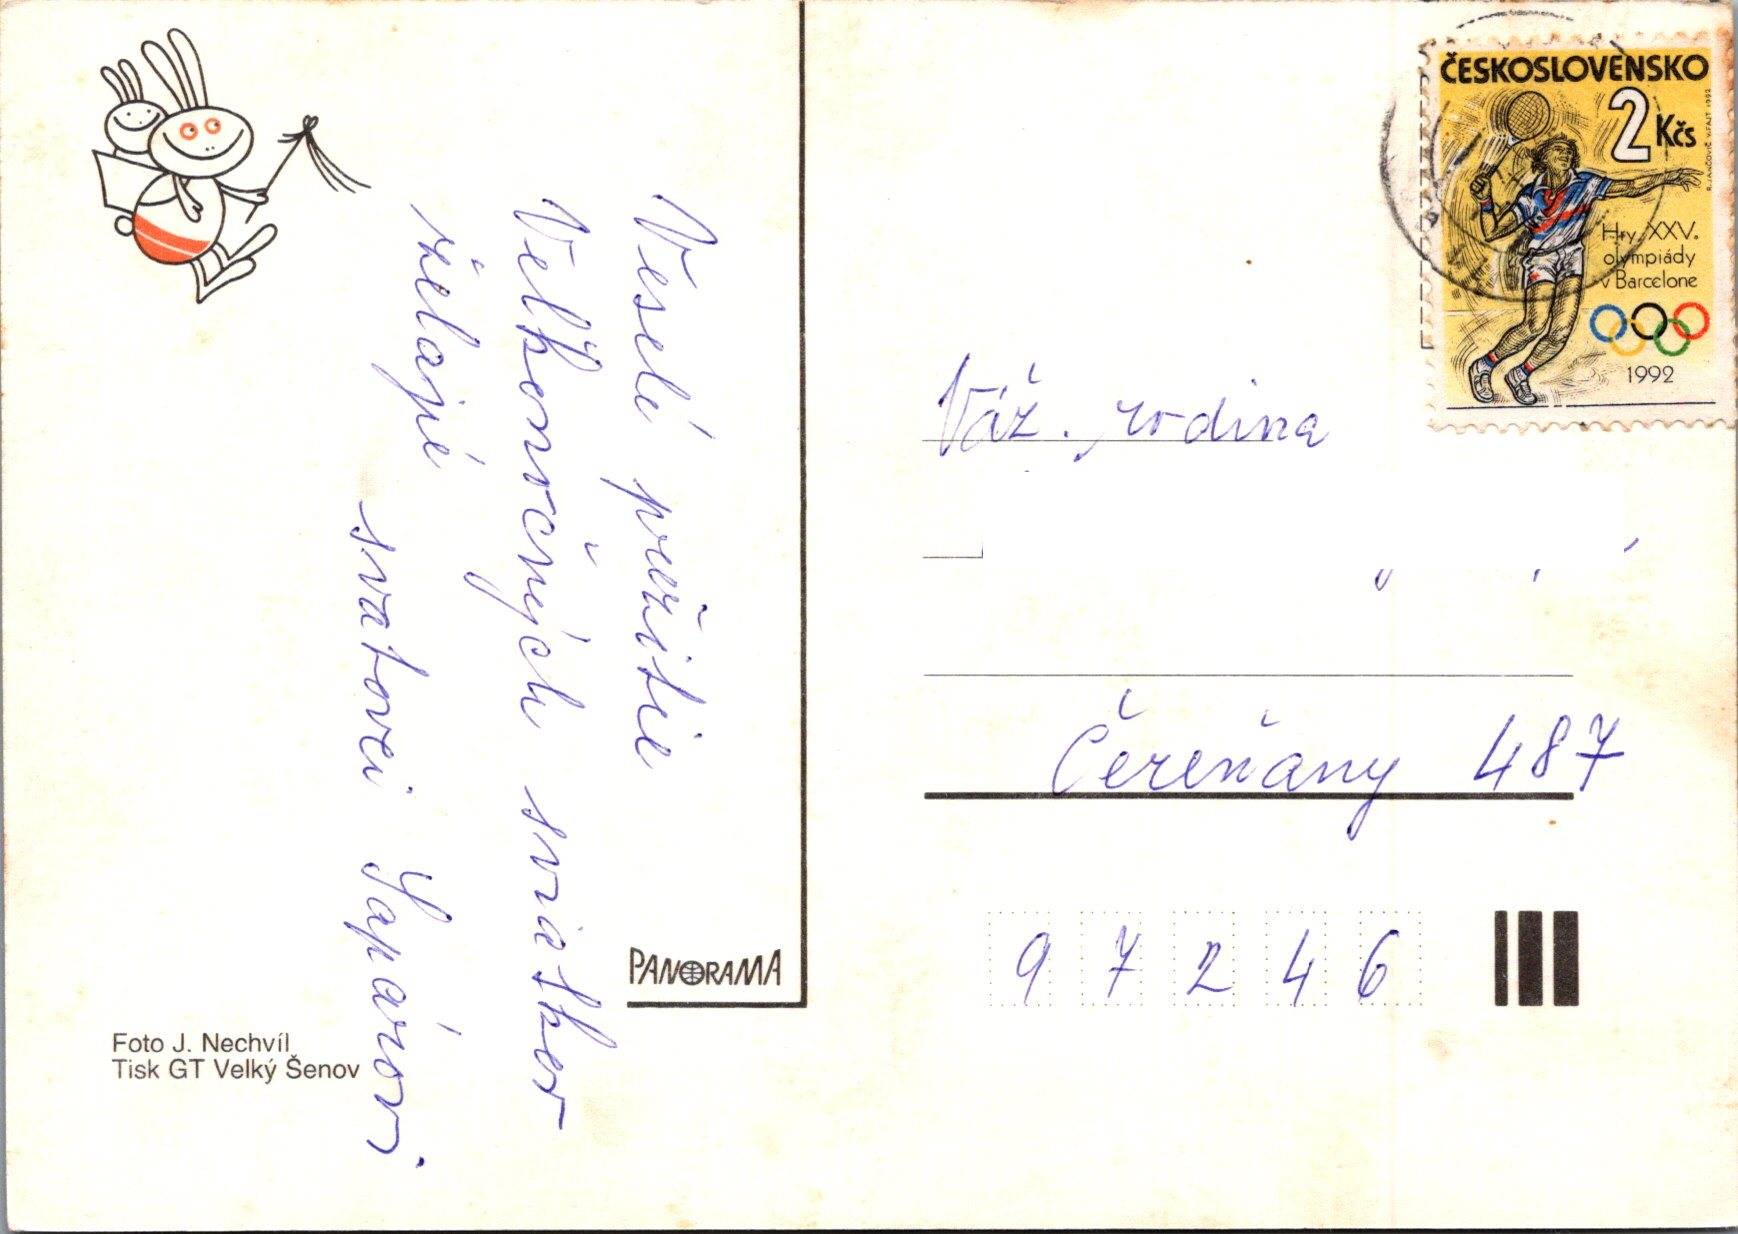 Veselé prežitie
Veľkonočných sviatkov
želajú
svatovci Gapárovi
PANORAMA
Foto J. Nechvíl
Tisk GT Velký Šenov
ČESKOSLOVENSKO
2 Kčs
Hry XXV.
olympiády
v Barcelone
1992
Váž. rodina
Čereňany 487
97246